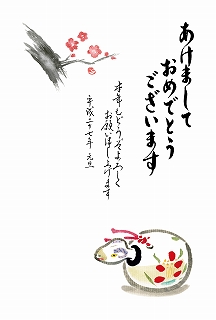 あけまして
おめでとう
ございます
本年もどうぞよろしく
お願い申し上げます
平成二十七年 元旦